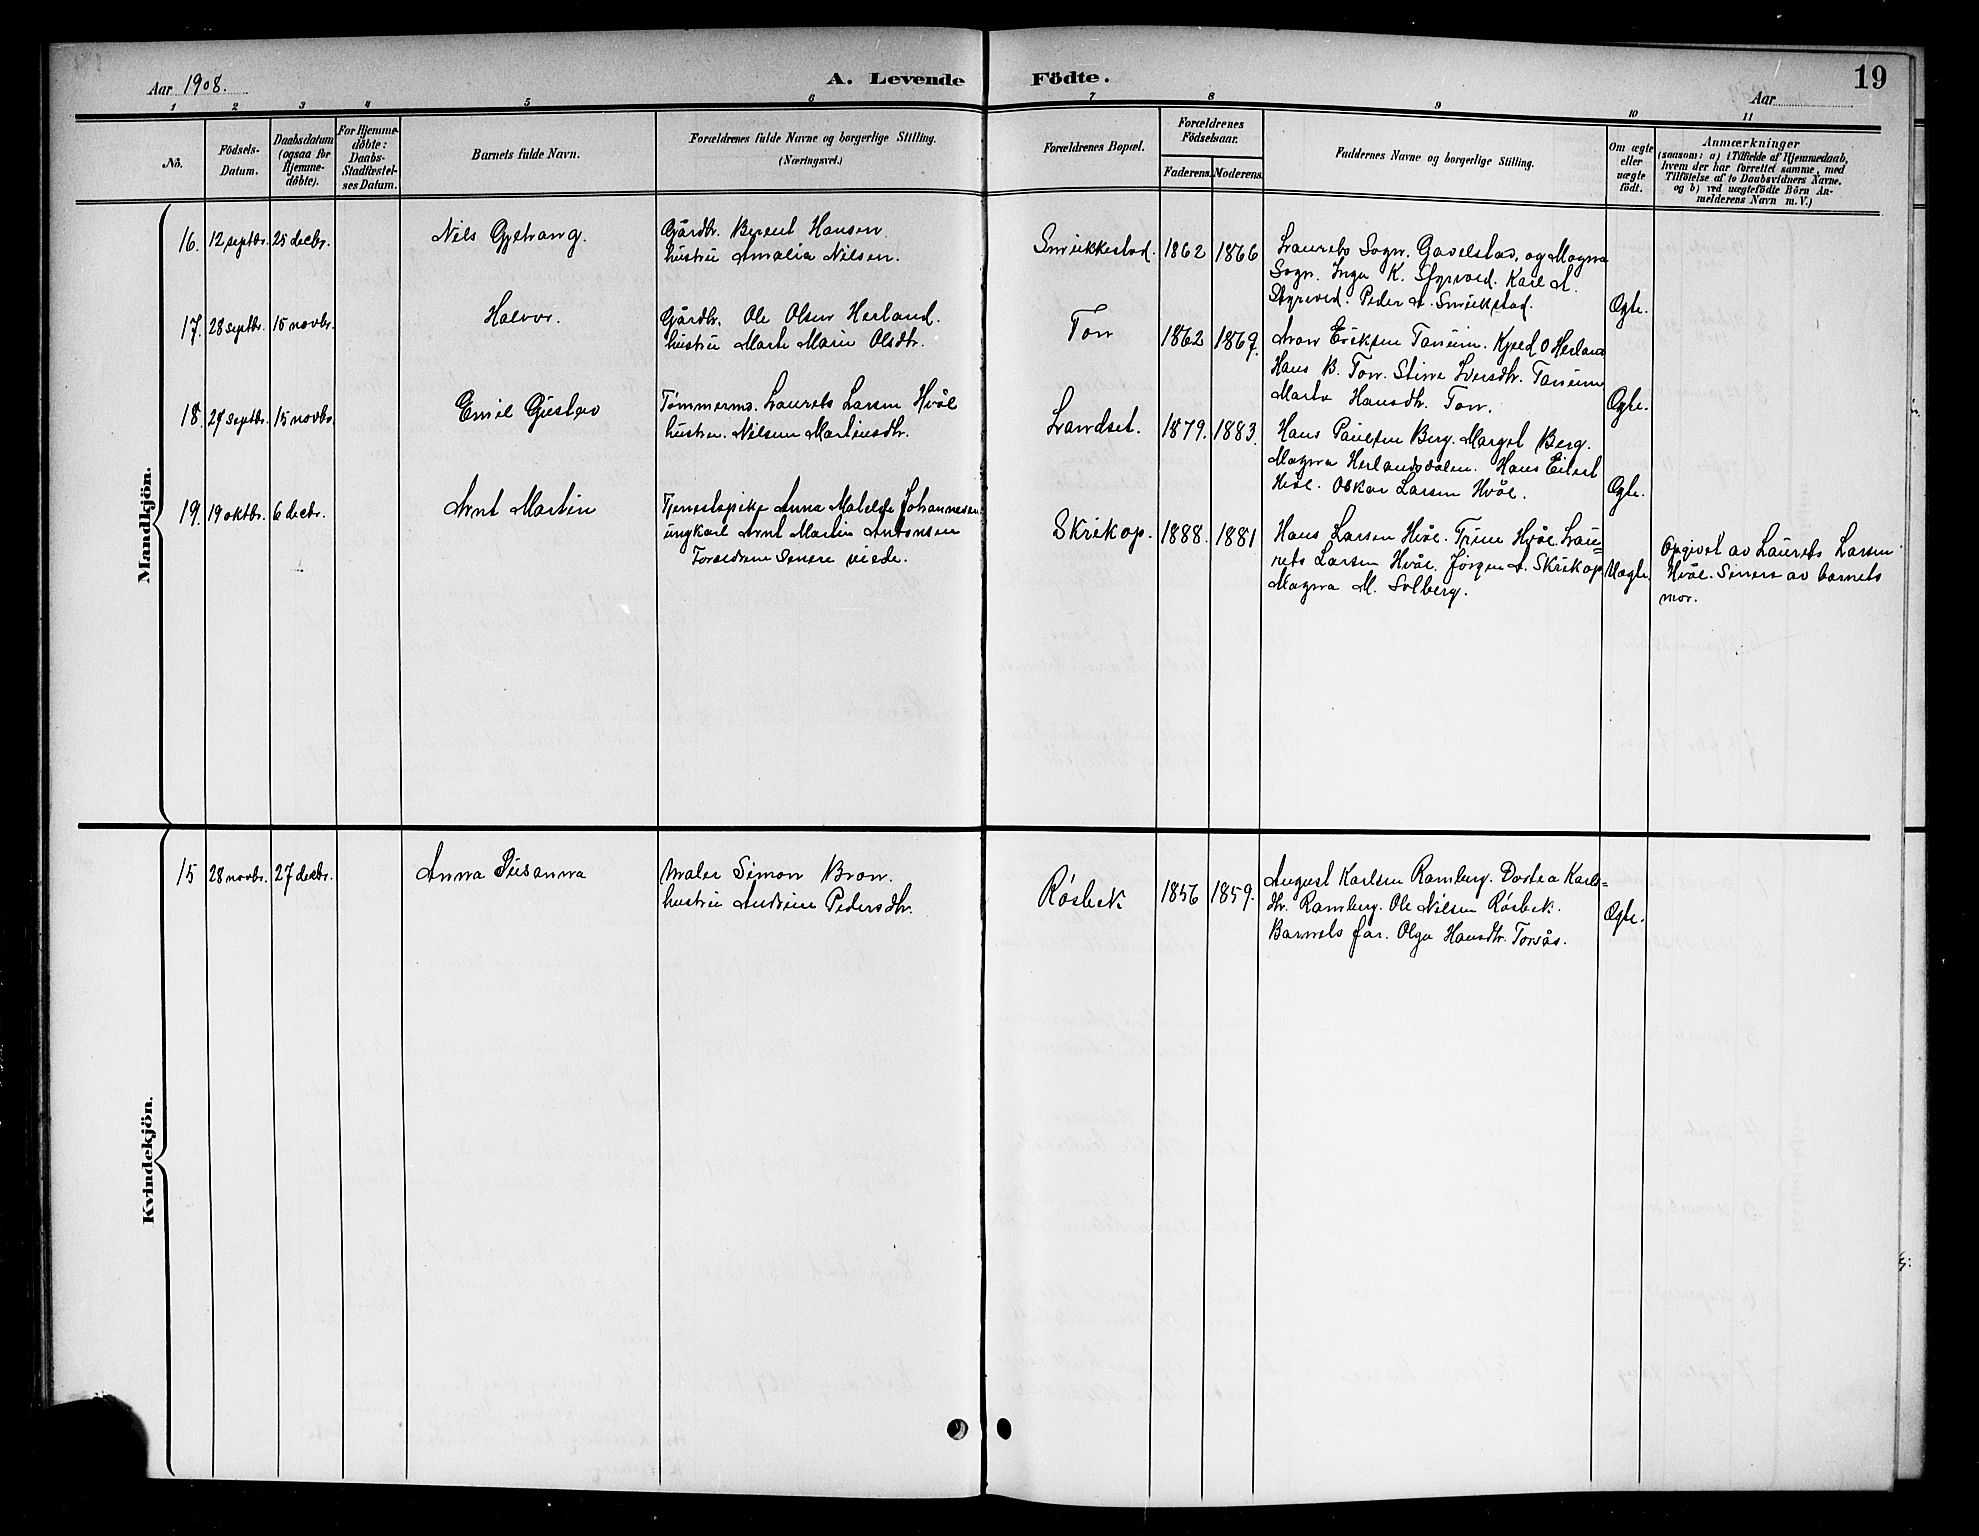 Aar 1908.
A. Levende Födte.
19
Aar
1 2 3 4 5 6 7 8 9 10 11
No.
Födsels-
Datum.
Daabsdatum
(ogsaa for
Hjemme-
döbte).
For Hjemme-
döbte:
Daabs-
Stadfæstel-
ses Datum.
Barnets fulde Navn.
Forældrenes fulde Navne og borgerlige Stilling.
(Næringsvei.)
Forældrenes Bopæl.
Forældrenes
Födselsaar.
Faderens. Moderens.
Faddernes Navne og borgerlige Stilling.
Om ægte
eller
uægte
födt.
Anmærkninger
(saasom: a) i Tilfælde af Hjemmedaab,
hvem der har forrettet samme, med
Tilföielse af to Daabsvidners Navne,
og b) ved uægtefödte Börn An-
melderens Navn m. V.)
Mandkjön.
16. 12 septbr. 25 decbr.
Nils Gjetrang.
Gårdbr. Berent Hansen.
hustru Amalia Nilsen.
Smukkestad. 1862 1866
Laurets Sogn. Gavelstad, og Magna
Sogn. Inga K. Styrvod. Karl A.
Styrvod. Peder A. Smukstad.
Ægte.
17. 28 septbr. 15 novbr.
Halvor.
Gårdbr. Ole Olsen Herland.
hustru Marte Marie Olsdtr.
Ton 1862 1869.
Aron Eriksen Tanum. Kjred O Herland
Hans B. Ton. Stine Iversdtr. Tanum
Marta Hansdtr. Ton.
Ægte.
18. 27 septbr. 15 novbr.
Emil Gustav
Tömmerm. Laurets Larsen Hvål
hustru. Nilsine Martinsdtr.
Landset. 1879. 1883.
Hans Paulsen Berg. Margot Berg.
Magna Herlandsdalen. Hans Eilert
Hvål. Oskar Larsen Hvål.
Ægte.
19. 19 oktbr. 6 decbr.
Arnt Martin
Tjenestepike Anna Matelde Johannesen
ungkarl Arnt Martin Antonsen
Foreldrene senere viede.
Skrikop. 1888. 1881
Hans Larsen Hvål. Trine Hvål. Lau=
rets Larsen Hvål. Jörgen A. Skrikop
Magna M. Solberg.
Uægte.
Opgivet av Laurets Larsen
Hvål. Senere av barnets
mor.
Kvindekjön.
15 28 novbr. 27 decbr.
Anna Susanna
Maler Simon Bron.
hustru Andrine Pedersdtr.
Rösbek 1856 1859.
August Karlsen Ramberg. Dortea Karls=
dtr. Ramberg. Ole Nilsen Rösbek.
Barnets far. Olga Hansdtr. Torsås.
Ægte.